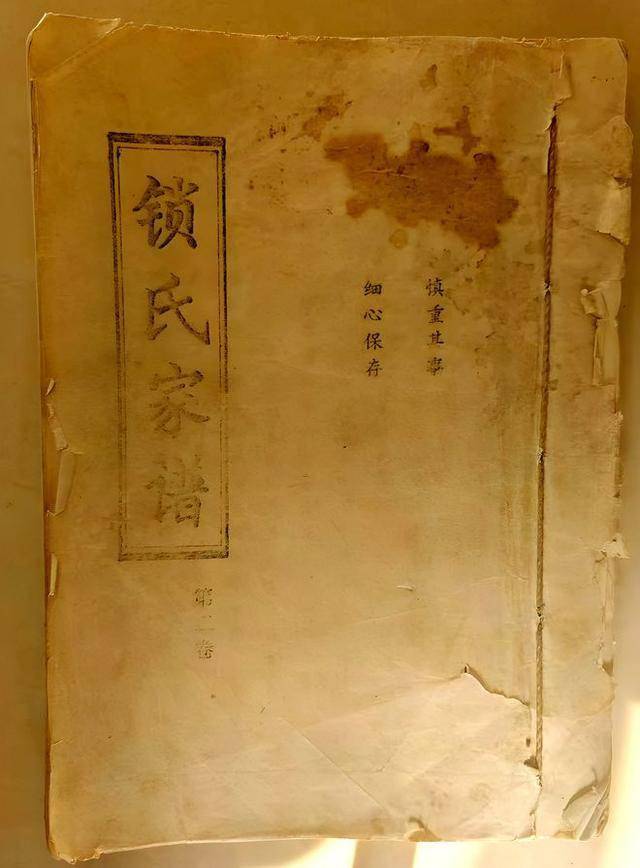 慎重其事
细心保存
锁氏家谱
第二卷